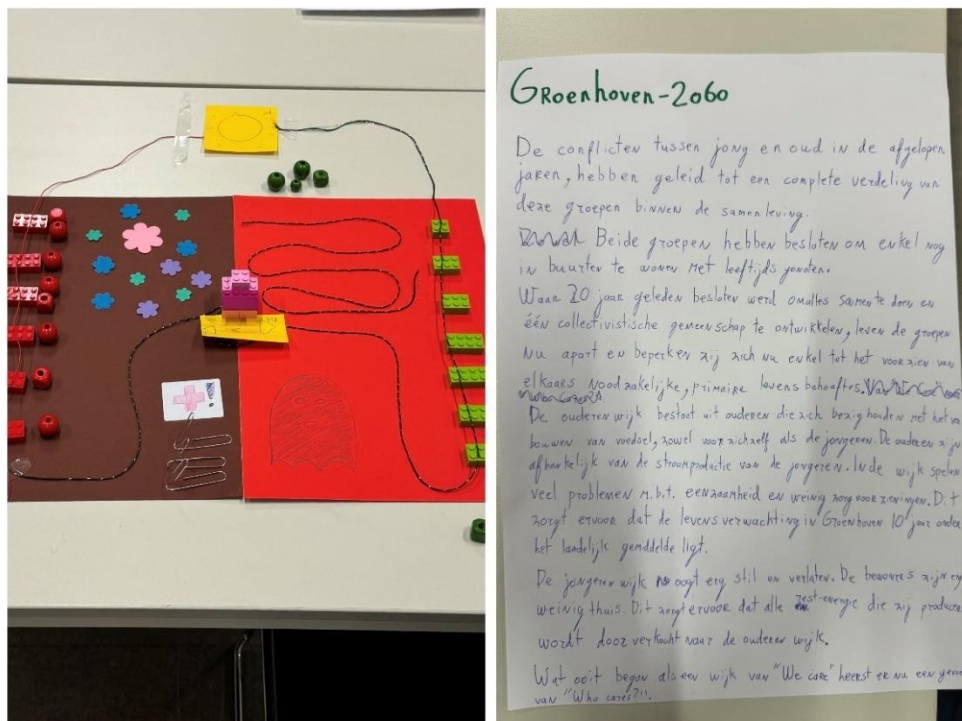 GROENHOVEN-2060
De conflicten tussen jong en oud in de afgelopen
jaren, hebben geleid tot een complete verdeling van
deze groepen binnen de samenleving.
Beide groepen hebben besloten om enkel nog
in buurten te wonen met leeftijdsgenoten.
Waar 20 jaar geleden besloten werd om alles samen te doen en
één collectivistische gemeenschap te ontwikkelen, leven de groepen
nu apart en beperken zij zich nu enkel tot het voorzien van
elkaars noodzakelijke, primaire levens behoeftes.
De ouderen wijk bestaat uit ouderen die zich bezig houden met het ver
bouwen van voedsel, zowel voor zichzelf als de jongeren. De ouderen zijn
afhankelijk van de stroomproductie van de jongeren. In de wijk spelen
veel problemen m.b.t. eenzaamheid en weinig zorgvoorzieningen. Dit
zorgt ervoor dat de levensverwachting in Groenhoven 10 jaar onder
het landelijk gemiddelde ligt.
De jongeren wijk oogt erg stil en verlaten. De bewoners zijn er
weinig thuis. Dit zorgt ervoor dat alle rest-energie die zij produce
wordt doorverkocht naar de ouderen wijk.
Wat ooit begon als een wijk van "We care" heerst er nu een
van "Who cares?!".